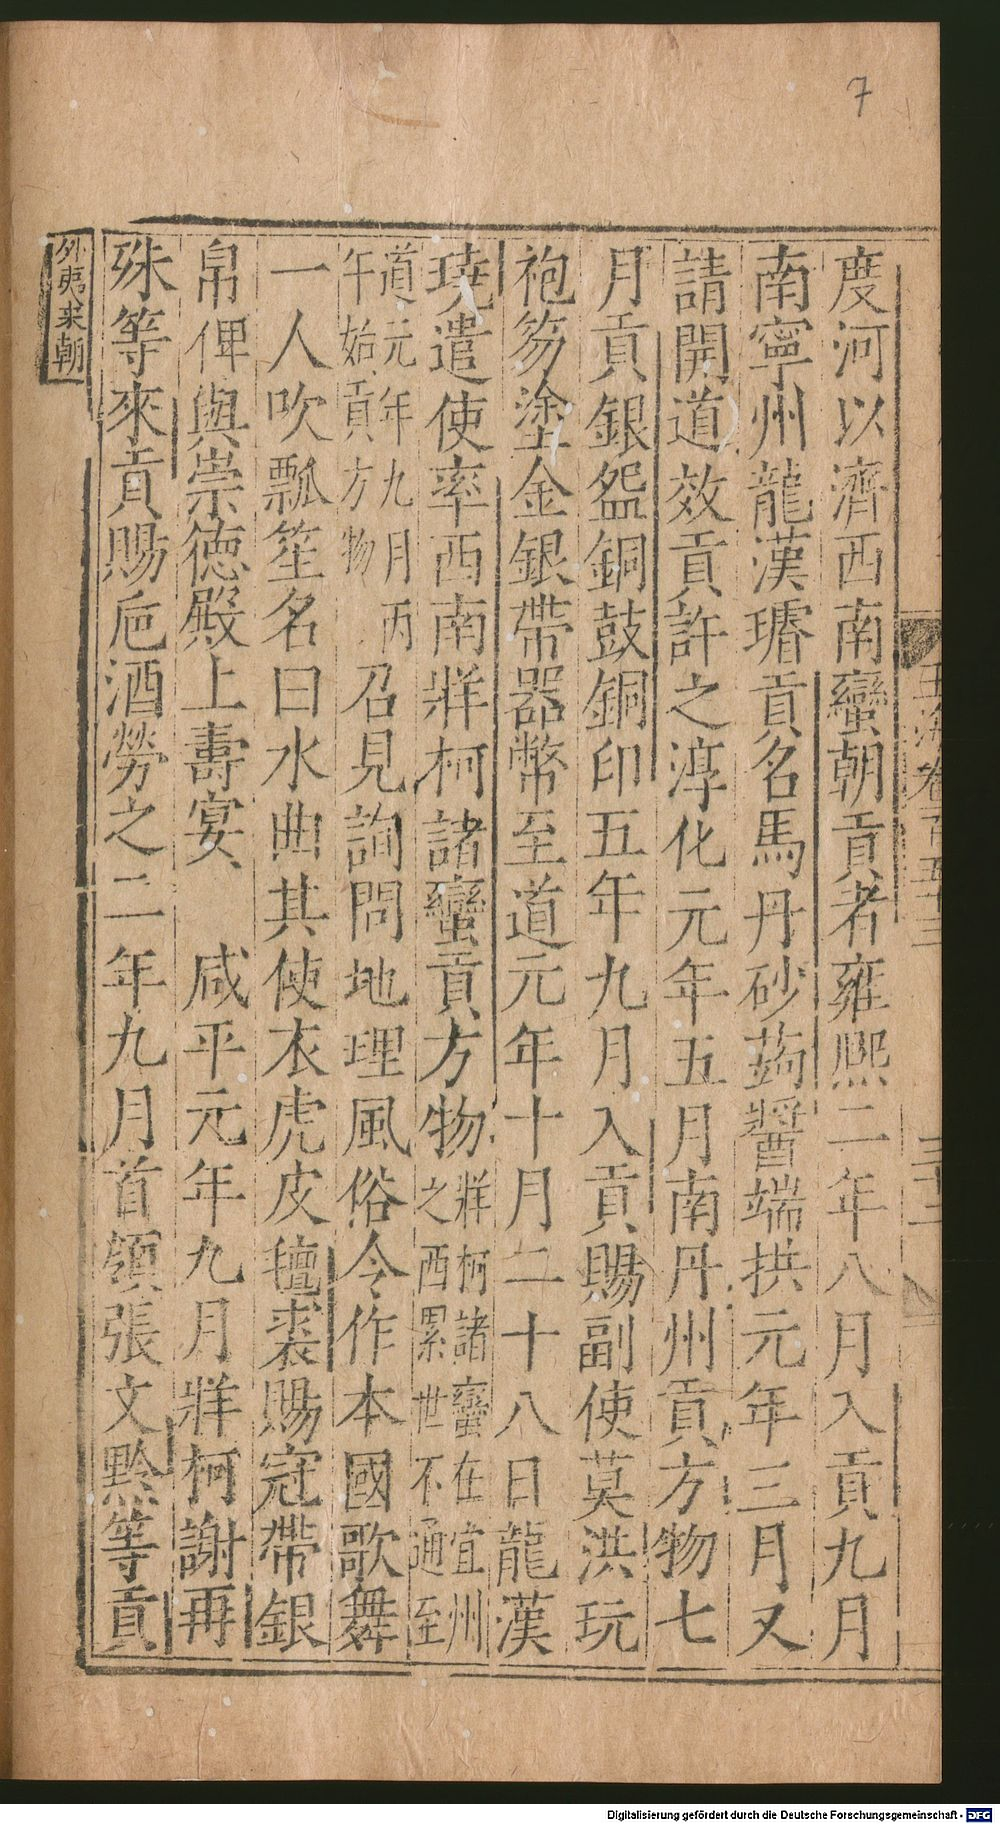 7
度河以濟西南蠻朝貢者雍熙二年八月入貢九月
南寧州龍漢璿貢名馬丹砂蒟醬端拱元年三月又
請開道效貢許之淳化元年五月南丹州貢方物七
月貢銀盌銅鼓銅印五年九月入貢賜副使莫洪玩
袍笏塗金銀帶器幣至道元年十月二十八日龍漢
𤩊遣使率西南牂柯諸蠻貢方物牂柯諸蠻在宜州
之西累世不通至
道元年九月丙
午始貢方物召見詢問地理風俗令作本國歌舞
一人吹瓢笙名曰水曲其使衣虎皮氊裘賜冠帶銀
帛俾與崇德殿上壽宴 咸平元年九月牂柯謝再
殊等來貢賜巵酒勞之二年九月首領張文黔等貢
外夷来朝
玉海卷百五十三
三十二
Digitalisierung gefördert durch die Deutsche Forschungsgemeinschaft - DFG